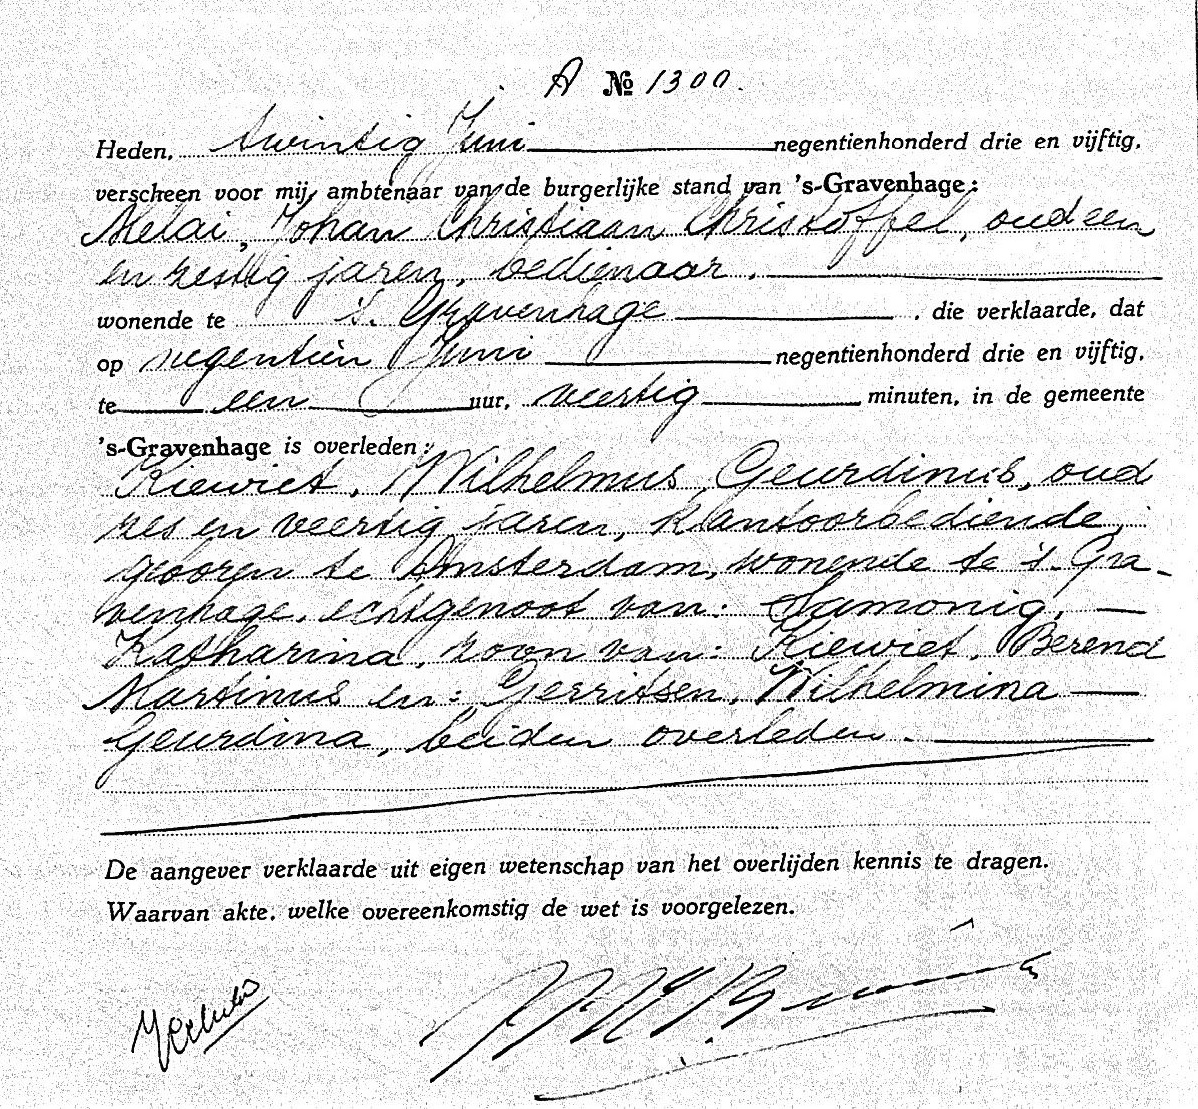 A № 1300.
Heden, twintig Juni negentienhonderd drie en vijftig,
verscheen voor mij, ambtenaar van de burgerlijke stand van 's-Gravenhage:
Melai, Johan Christiaan Christoffel, oud een
en zestig jaren, bedienaar.
wonende te 's. Gravenhage , die verklaarde, dat
op negentien Juni negentienhonderd drie en vijftig,
te een uur, veertig minuten, in de gemeente
's-Gravenhage is overleden:
Kiewiet, Wilhelmus Geurdinus, oud
zes en veertig jaren, kantoorbediende,
geboren te Amsterdam, wonende te 's. Gra-
venhage, echtgenoot van: Samonig,
Katharina, zoon van: Kiewiet, Berend
Martinus en: Gerritsen, Wilhelmina
Geurdina, beiden overleden.
De aangever verklaarde uit eigen wetenschap van het overlijden kennis te dragen.
Waarvan akte, welke overeenkomstig de wet is voorgelezen.